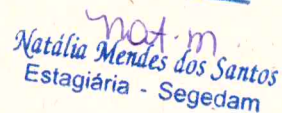 nat.m
Natália Mendes dos Santos
Estagiária - Segedam